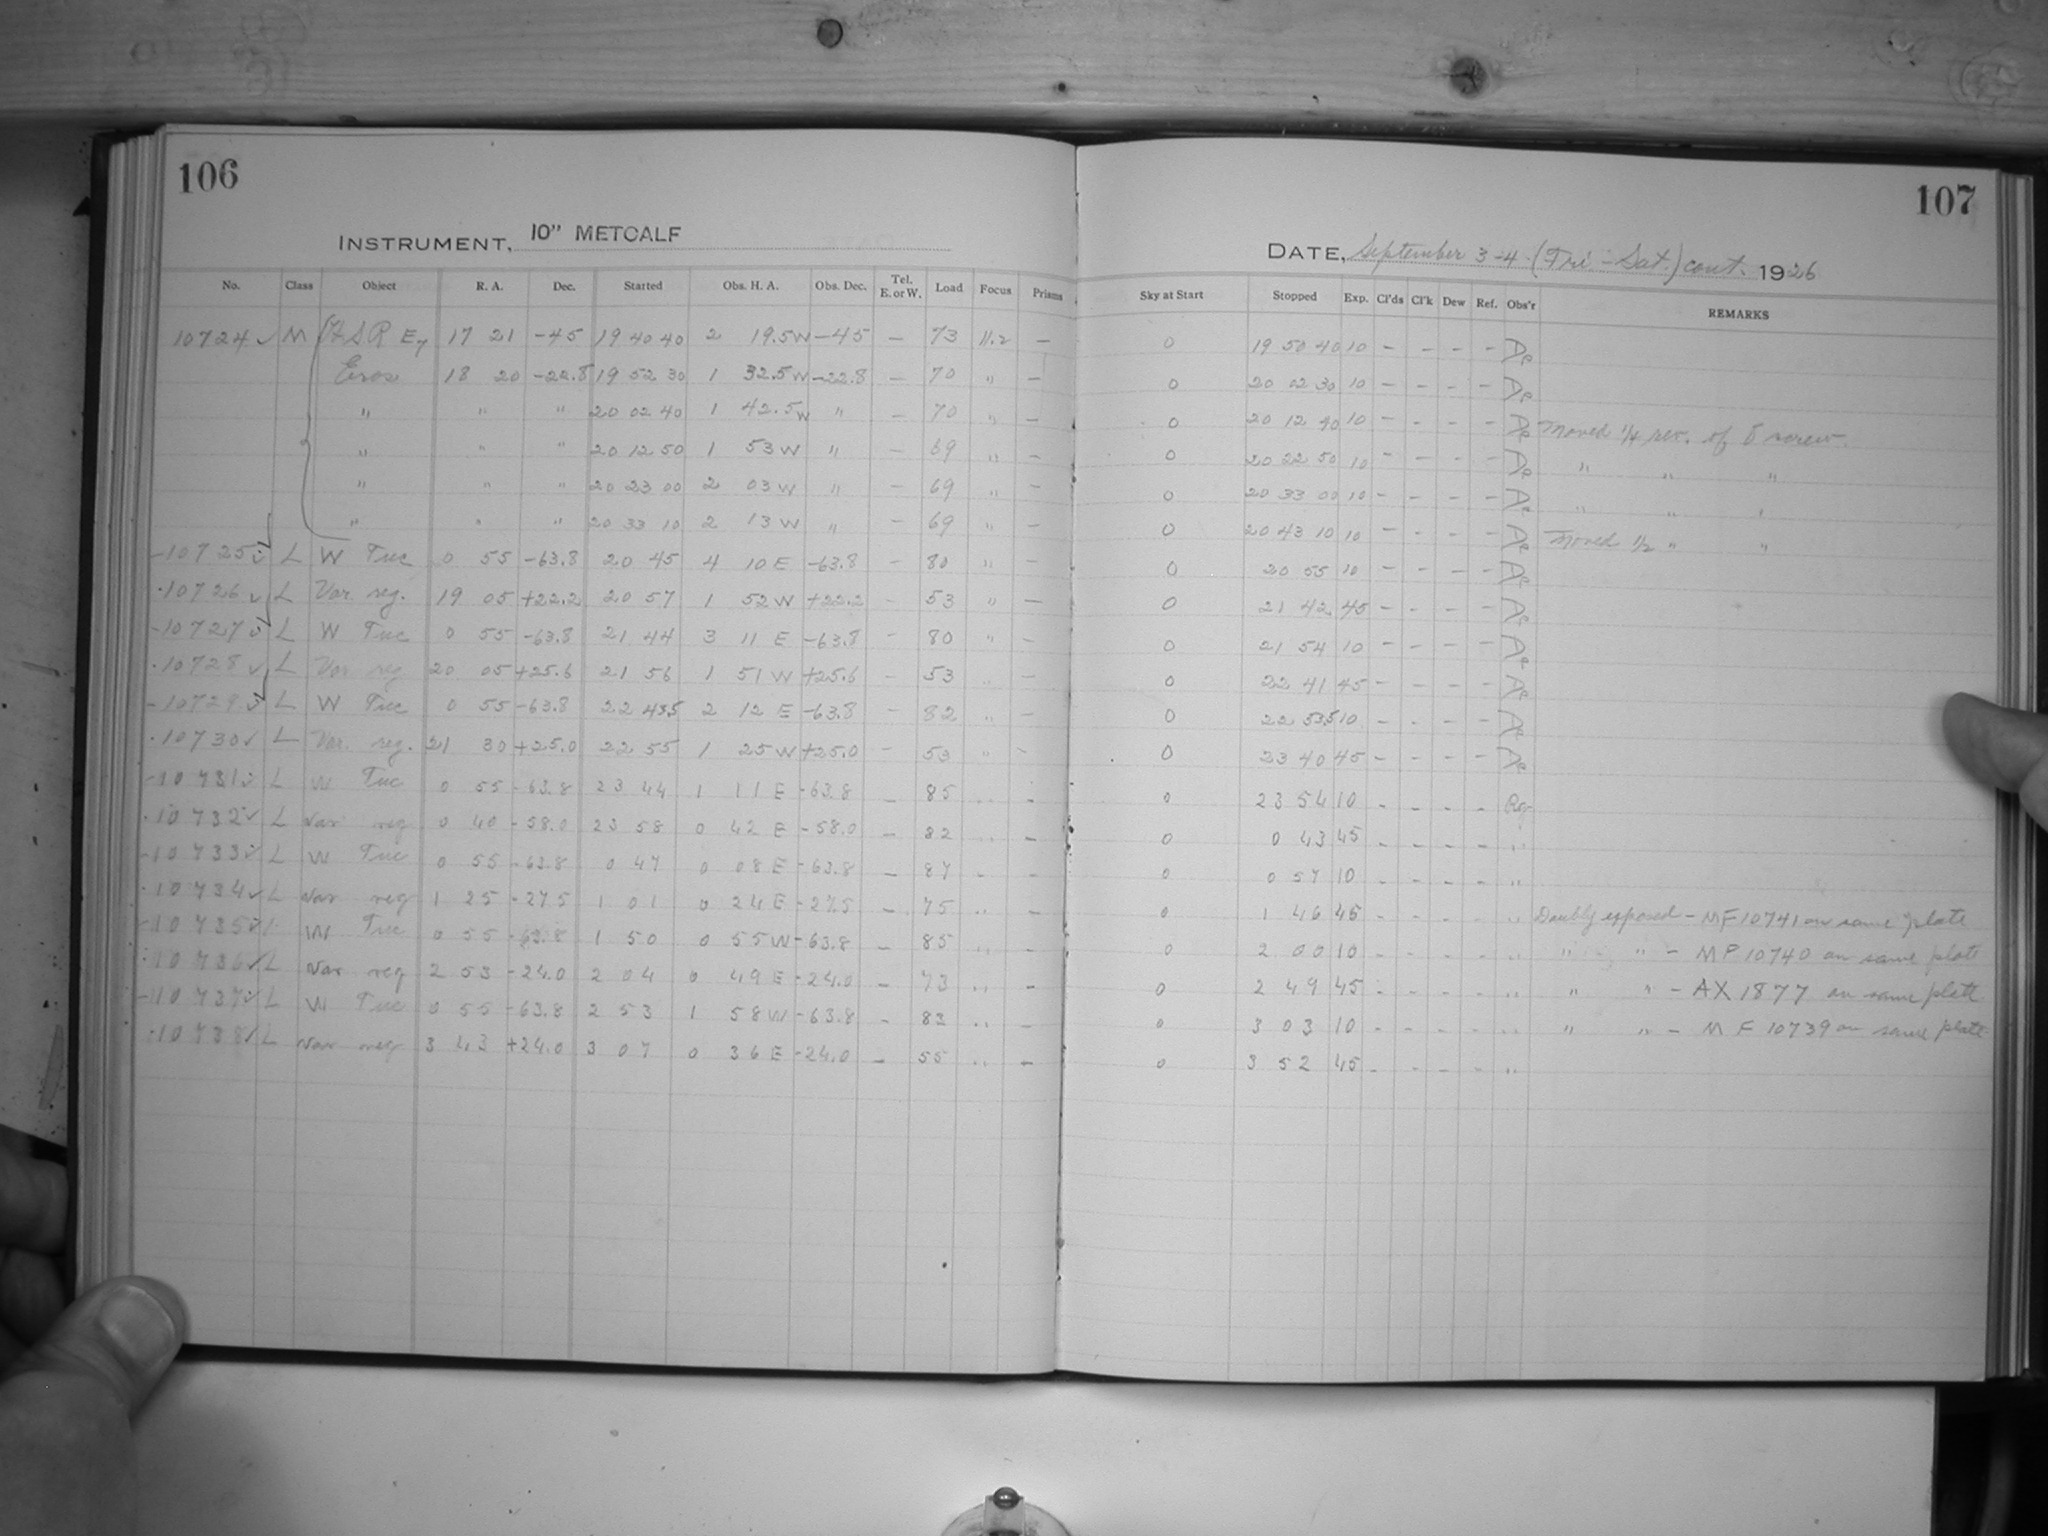 106
INSTRUMENT, 10" METCALF
No. Class Object R. A. Dec. Started Obs. H. A. Obs. Dec. Tel. E. or W. Load Focus Prisms
10724 ✓ M HSR E7 17 21 -45 19 40 40 2 19.5 W -45 - 73 11.2 -
Eros 18 20 -22.8 19 52 30 1 32.5 W -22.8 - 70 " -
" " " 20 02 40 1 42.5 W " - 70 " -
" " " 20 12 50 1 53 W " - 69 " -
" " " 20 23 00 2 03 W " - 69 " -
" " " 20 33 10 2 13 W " - 69 " -
10725 ✓ L W Tuc 0 55 -63.8 20 45 4 10 E -63.8 - 80 " -
10726 ✓ L Var reg. 19 05 +22.2 20 57 1 52 W +22.2 - 53 " -
10727 ✓ L W Tuc 0 55 -63.8 21 44 3 11 E -63.8 - 80 " -
10728 ✓ L Var reg 20 05 +25.6 21 56 1 51 W +25.6 - 53 " -
10729 ✓ L W Tuc 0 55 -63.8 22 43.5 2 12 E -63.8 - 82 " -
10730 ✓ L Var. reg. 21 30 +25.0 22 55 1 25 W +25.0 - 53 " -
10731 ✓ L W Tuc 0 55 -63.8 23 44 1 11 E -63.8 - 85 " -
10732 ✓ L Var reg 0 40 -58.0 23 58 0 42 E -58.0 - 82 " -
10733 ✓ L W Tuc 0 55 -63.8 0 47 0 08 E -63.8 - 87 - -
10734 ✓ L Var reg 1 25 -27.5 1 01 0 24 E -27.5 - 75 " -
10735 ✓ L W Tuc 0 55 -63.8 1 50 0 55 W -63.8 - 85 " -
10736 ✓ L Var reg 2 53 -24.0 2 04 0 49 E -24.0 - 73 " -
10737 ✓ L W Tuc 0 55 -63.8 2 53 1 58 W -63.8 - 83 " -
10738 ✓ L Var reg 3 43 +24.0 3 07 0 36 E -24.0 - 55 " -
107
DATE, September 3-4 (Fri.-Sat.) cont. 1926
Sky at Start Stopped Exp. Cl'ds Cl'k Dew Ref. Obs'r REMARKS
0 19 50 40 10 - - - -
0 20 02 30 10 - - - -
0 20 12 40 10 - - - - Moved 1/4 rev. of δ screw.
0 20 22 50 10 - - - - " " "
0 20 33 00 10 - - - - " " "
0 20 43 10 10 - - - - Moved 1/2 " "
0 20 55 10 - - - -
0 21 42 45 - - - -
0 21 54 10 - - - -
0 22 41 45 - - - -
0 22 53.5 10 - - - -
0 23 40 45 - - - -
0 23 54 10 - - - -
0 0 43 45 - - - - "
0 0 57 10 - - - - "
0 1 46 45 - - - - " Doubly exposed - MF 10741 on same plate
0 2 00 10 - - - - " " " - MF 10740 on same plate
0 2 49 45 - - - - " " " - AX 1877 on same plate
0 3 03 10 - - - - " " " - MF 10739 on same plate
0 3 52 45 - - - - "